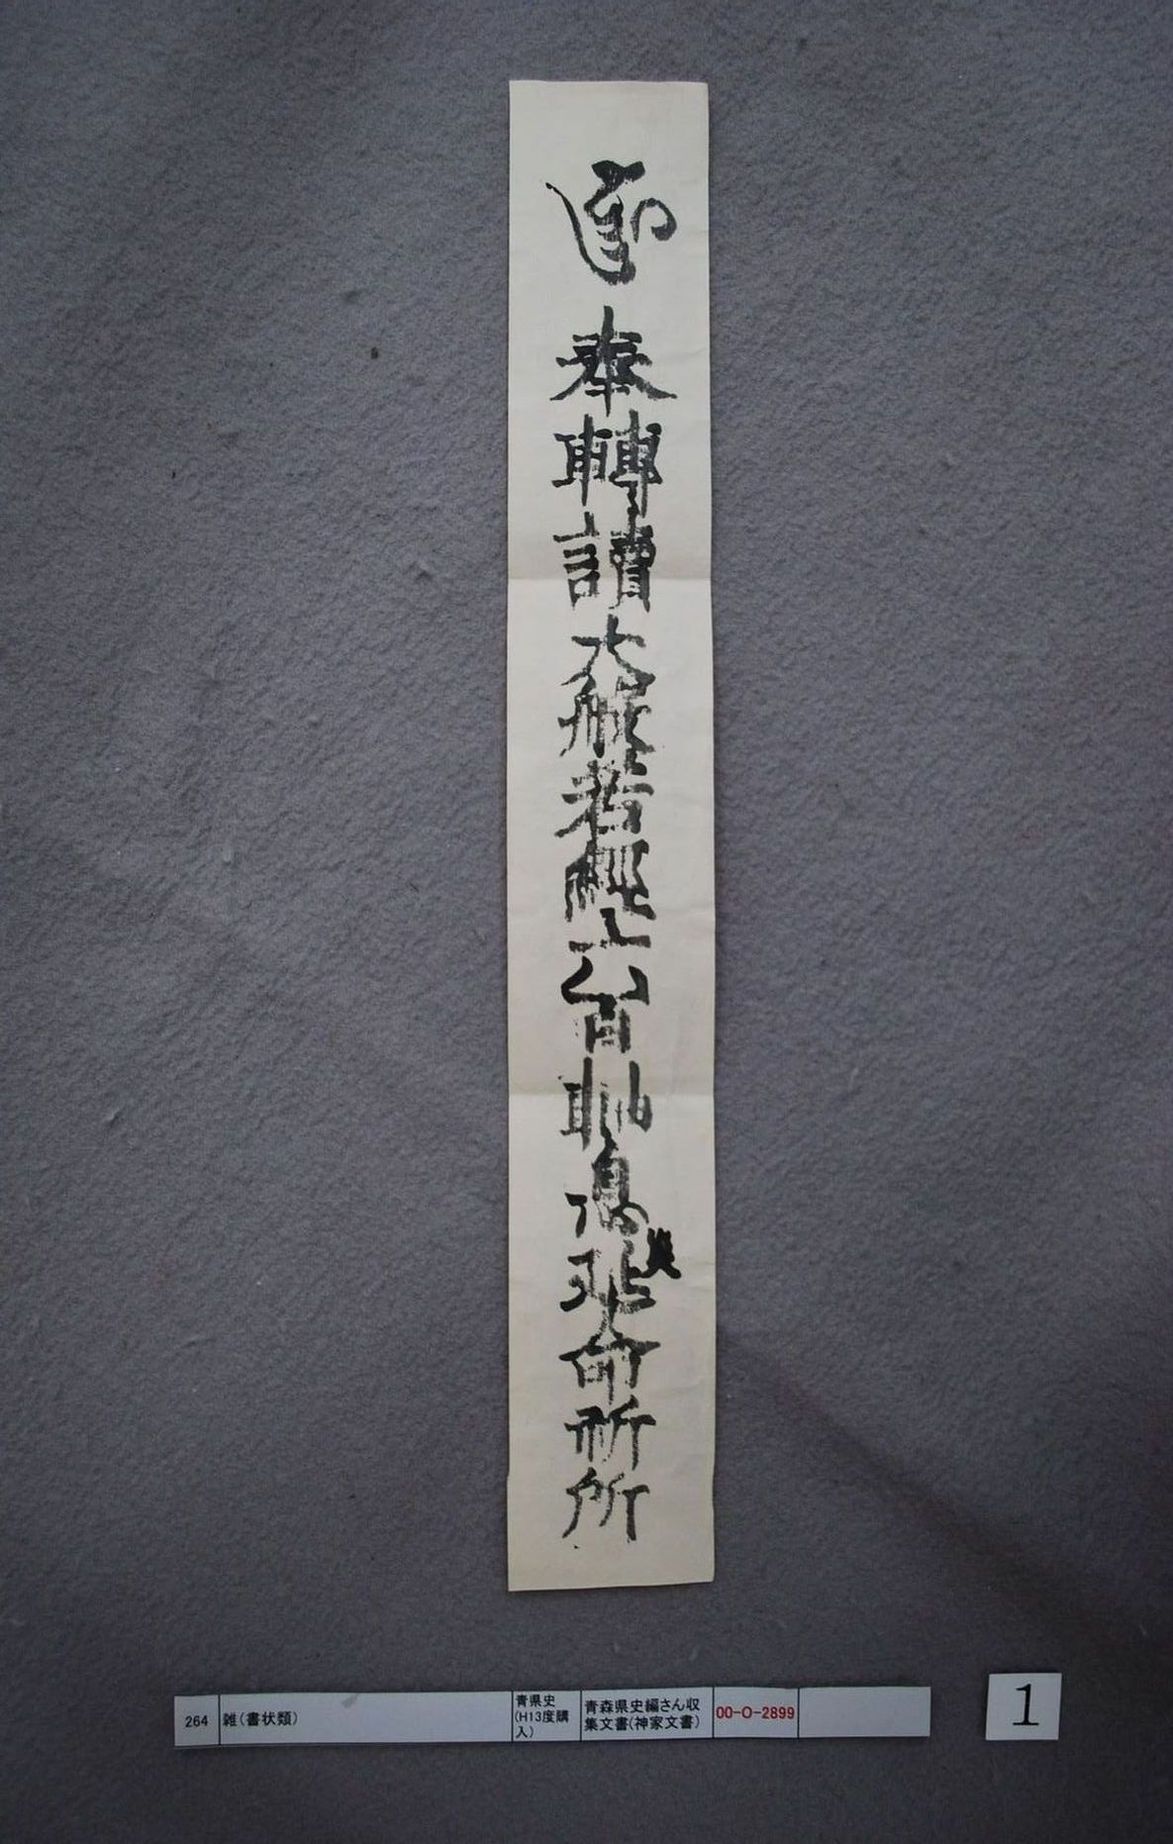 奉轉讀大般若經六百軸息災延命祈所
264
雑(書状類)
青県史
(H13度購
入)
青森県史編さん収
集文書(神家文書)
00-O-2899
1